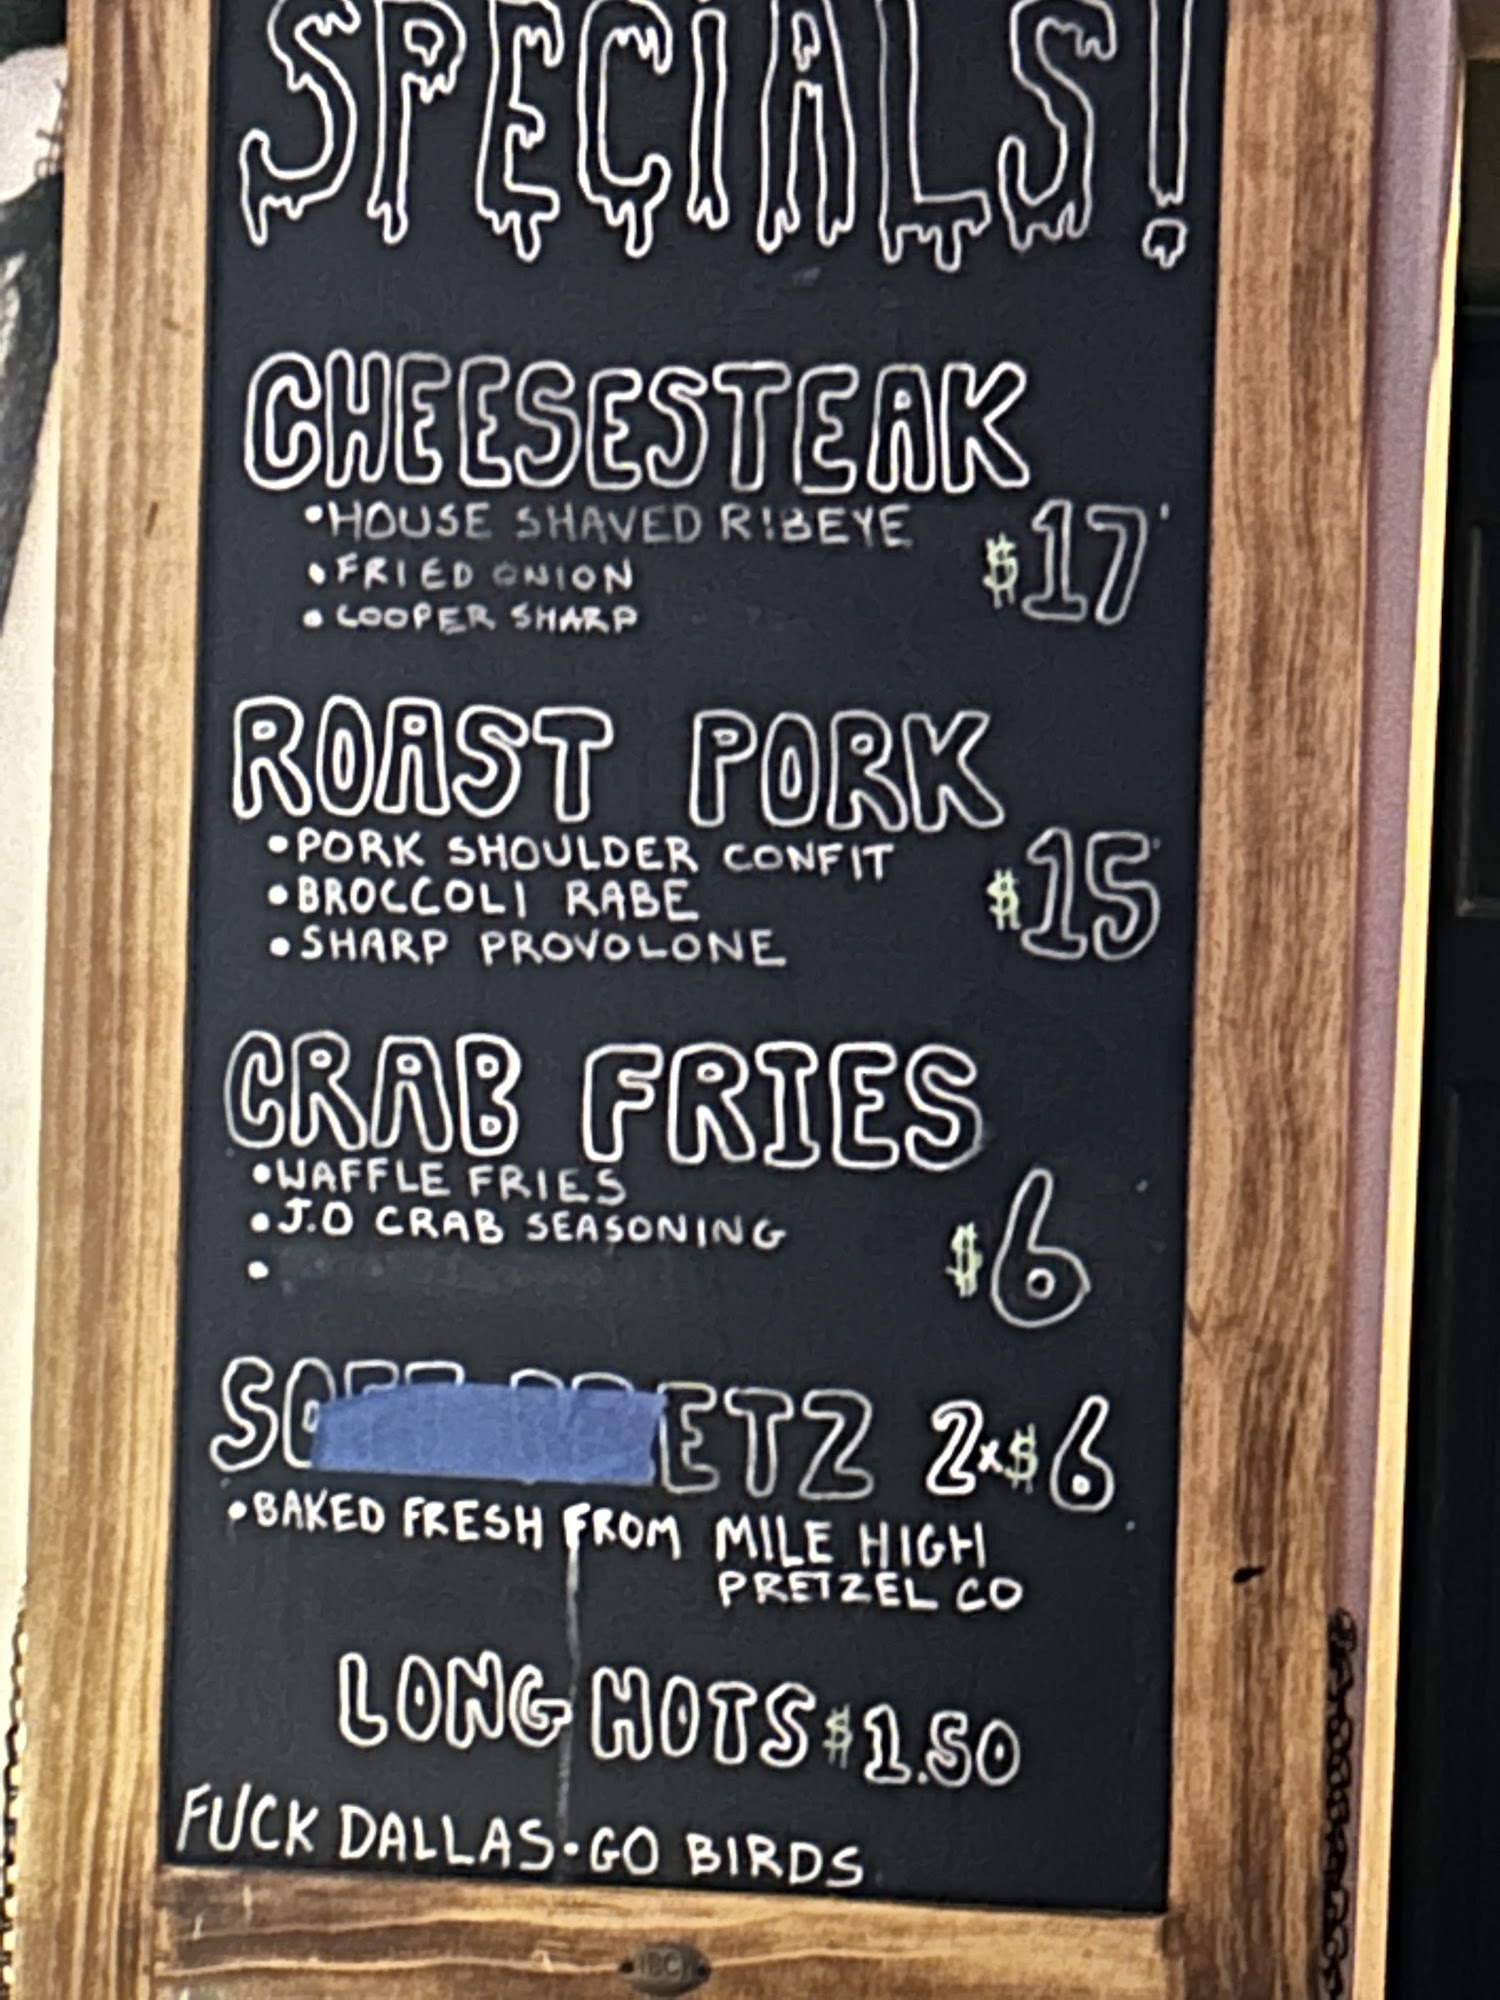 SPECIALS!
CHEESESTEAK
•HOUSE SHAVED RIBEYE $17
•FRIED ONION
•COOPER SHARP
ROAST PORK
•PORK SHOULDER CONFIT $15
•BROCCOLI RABE
•SHARP PROVOLONE
CRAB FRIES
•WAFFLE FRIES
•J.O CRAB SEASONING $6
•
SOFT PRETZ 2x$6
•BAKED FRESH FROM MILE HIGH
PRETZEL CO
LONG HOTS $1.50
FUCK DALLAS•GO BIRDS